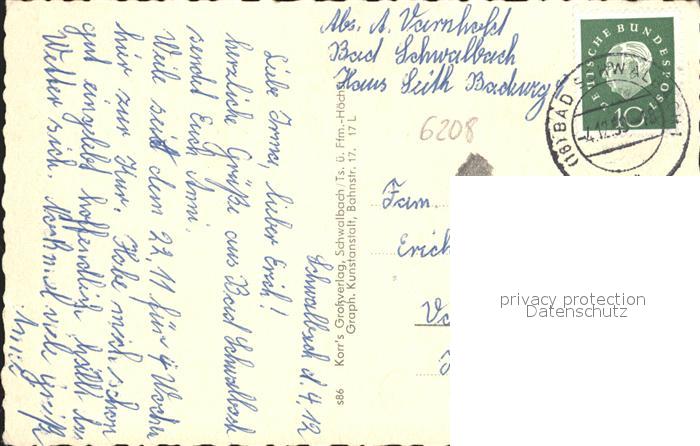 Abs. A. Varnholt
Bad Schwalbach
Haus Seith Badweg
6208
DEUTSCHE BUNDESPOST
10
(16) BAD SCHWALBACH
-4.12.59
Schwalbach d. 4.12
Liebe Irma, lieber Erich!
herzliche Grüße aus Bad Schwalbach
sendet Euch Anni.
Weile seit dem 27.11 für 4 Wochen
hier zur Kur. Habe mich schon
gut eingelebt hoffendlich hällt das
Wetter sich. Nochmal viele Grüße
Anni
s86 Korr's Großverlag, Schwalbach/Ts. ü. Ffm.-Höchst
Graph. Kunstanstalt, Bahnstr. 17. 17 L
Fam.
Erich
privacy protection
Datenschutz